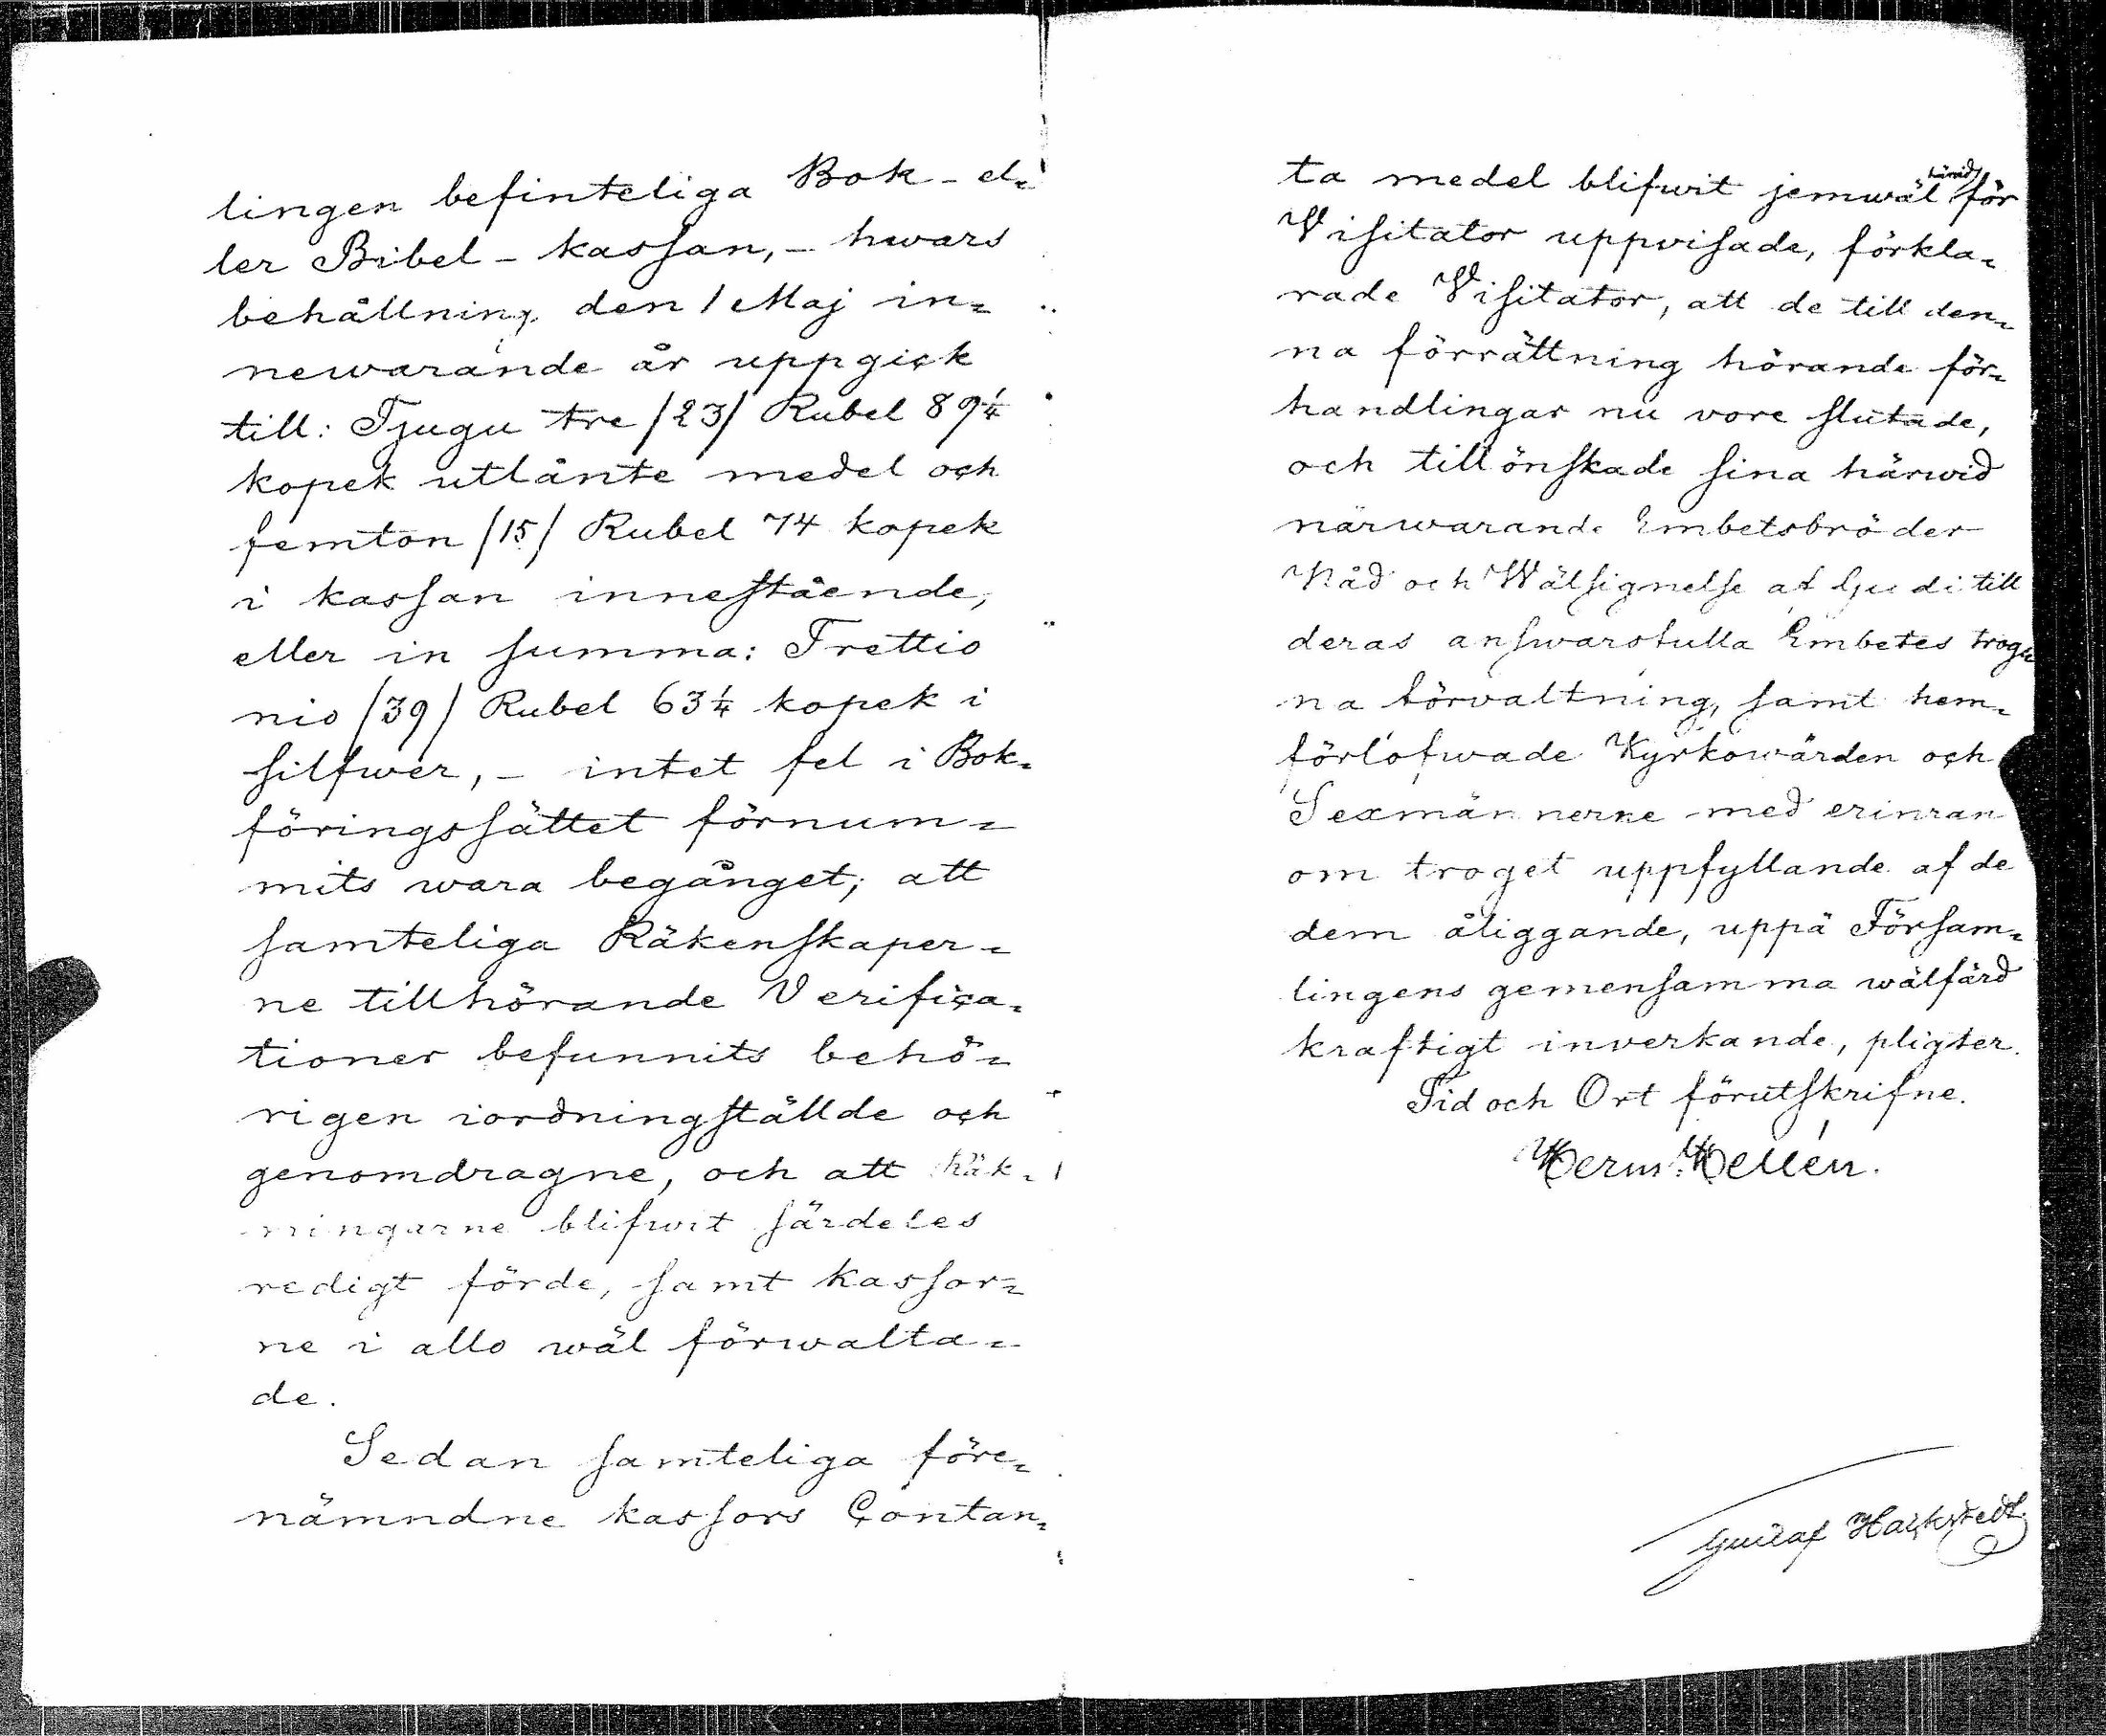 lingen befinteliga Bok-el=
ler Bibel-kassan,- hwars
behållning den 1 Maj in=
newarande år uppgick
till: Tjugu tre /23/ Rubel 89¼
kopek utlånte medel och
femton /15/ Rubel 74 kopek
i kassan innestående,
eller in summa: Trettio
nio /39/ Rubel 63¼ kopek i
silfwer,- intet fel i Bok=
föringssättet förnum=
mits wara begånget; att
samteliga Räkenskaper=
ne tillhörande Verifica=
tioner befunnits behö=
rigen iordningställde och
genomdragne, och att Räk=
ningarne blifwit särdeles
redigt förde, samt kassor=
ne i allo wäl förwalta=
de.
Sedan samteliga före=
nämndne kassors Contan=
ta medel blifwit jemwäl härwid för
Visitator uppvisade, förkla=
rade Visitator, att de till den=
na förrättning hörande för=
handlingar nu vore slutade,
och tillönskade sina härwid
närwarande Embetsbröder
Nåd och Wälsignelse af Gudi till
deras answarsfulla Embetes trog=
na förvaltning, samt hem=
förlofwade Kyrkowärden och
Sexmännerne med erinran
om troget uppfyllande af de
dem åliggande, uppå Försam=
lingens gemensamma wälfärd
kraftigt inverkande, pligter.
Tid och Ort förutskrifne.
Herm: Hellén.
Gustaf Hackstedt